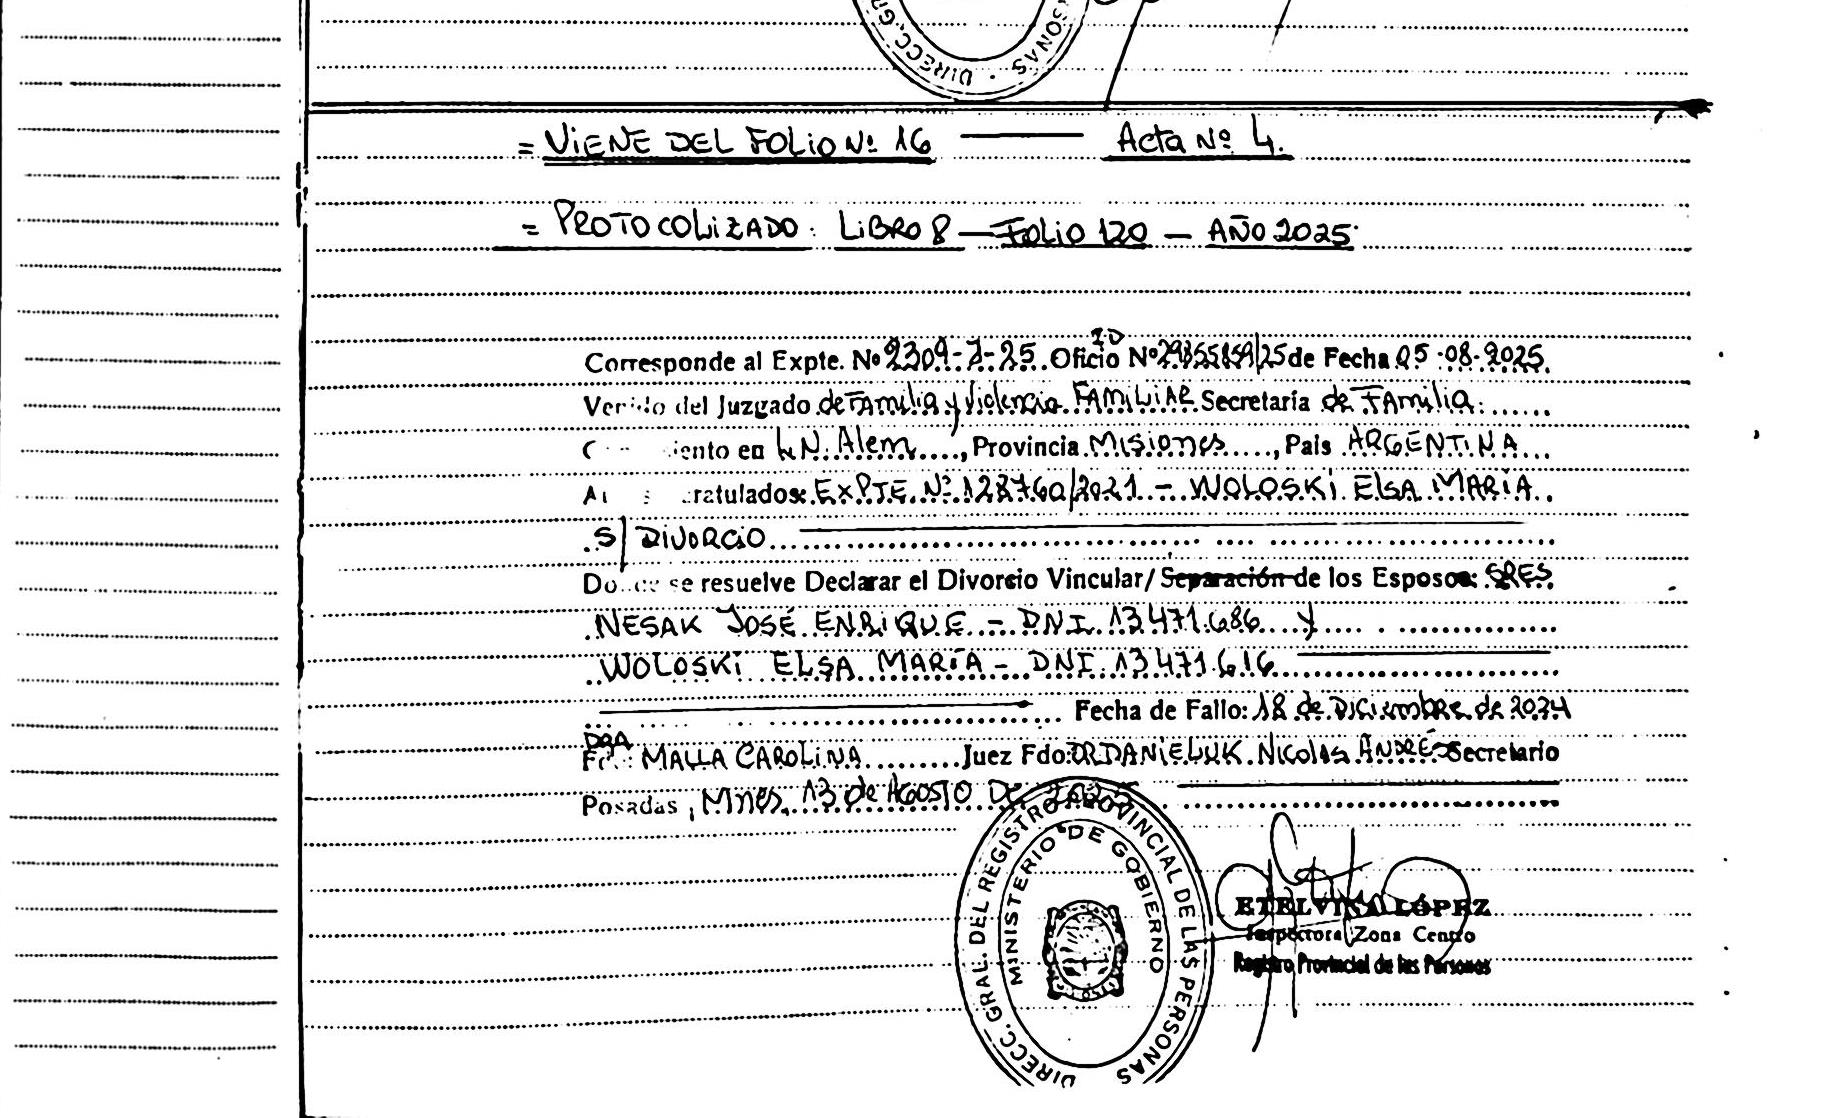 DIRECC. GR
SONAS
= VIENE DEL FOLIO Nº 16 — Acta Nº 4.
= PROTOCOLIZADO: LIBRO 8 — FOLIO 120 — AÑO 2025.
ID
Corresponde al Expte. Nº 2309-J-25. Oficio Nº 29855859/25 de Fecha 05-08-2025.
del Juzgado de Familia y Violencia FAMILIAR Secretaría de FAMILIA:
iento en L.N. Alem, Provincia Misiones, Pais ARGENTINA
ratulados: EXPTE. Nº 128760/2021 - WOLOSKI ELSA MARÍA
S/ DIVORCIO
se resuelve Declarar el Divorcio Vincular/ Separación de los Esposos: SRES
NESAK JOSÉ ENRIQUE - DNI. 13.471.686 y
WOLOSKI ELSA MARÍA - DNI. 13.471.616
Fecha de Fallo: 18 de Diciembre de 2024
DRA
MALLA CAROLINA Juez Fdo: DR. DANIELUK NICOLAS ANDRÉS Secretario
Posadas, Mnes, 13 de AGOSTO DE 2025
DIRECC. GRAL. DEL REGISTRO PROVINCIAL DE LAS PERSONAS
MINISTERIO DE GOBIERNO
ETELVINA LÓPEZ
Inspectora Zona Centro
Registro Provincial de las Personas